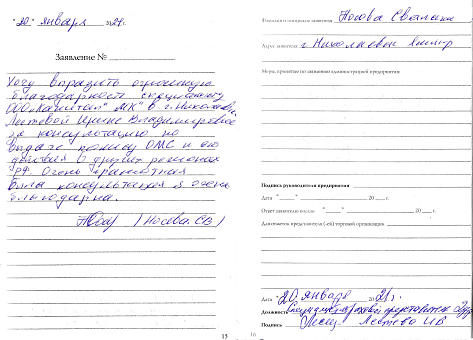 "20" января 2021.
Заявление №
Хочу выразить огромную
благодарность
ООО "Капитал" МК" в г. Николаевс
Владимировне
за консультацию по
выдаче полису ОМС и его
действия в других регионах
РФ. Очень грамотная
была консультация я очень
благодарна.
(Носова. СВ)
15
Фамилия и инициалы заявителя Носова Светлана
Адрес заявителя г. Николаевск
Меры, принятые по заявлению администрацией предприятия
Подпись руководителя предприятия
Дата " " 20 г.
Ответ заявителю послан " " 20 г.
Должность представителя (-ей) торговой организации
Дата "20 января 2021 г.
Должность
Подпись ИВ
16